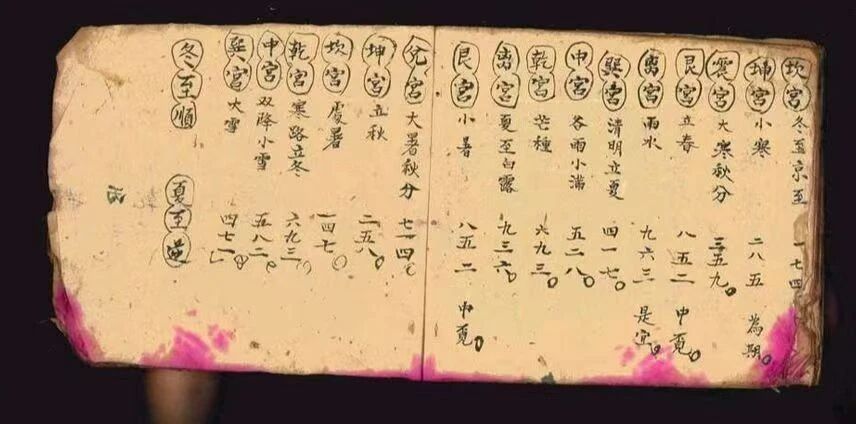 坎宮冬至京至 一七四
坤宮小寒 二八五 為期
震宮大寒秋分 三五九
艮宮立春 八五二 中覓
离宮雨水 九六三 是宜
巽宮清明立夏 四一七
中宮谷雨小滿 五二八
乾宮芒種 六九三
离宮夏至白露 九三六
艮宮小暑 八五二 中覓
兌宮大暑秋分 七一四
坤宮立秋 二五八
坎宮處暑 一四七
乾宮寒路立冬 六九三
中宮双降小雪 五八二
巽宮大雪 四七一
冬至順 夏至逆